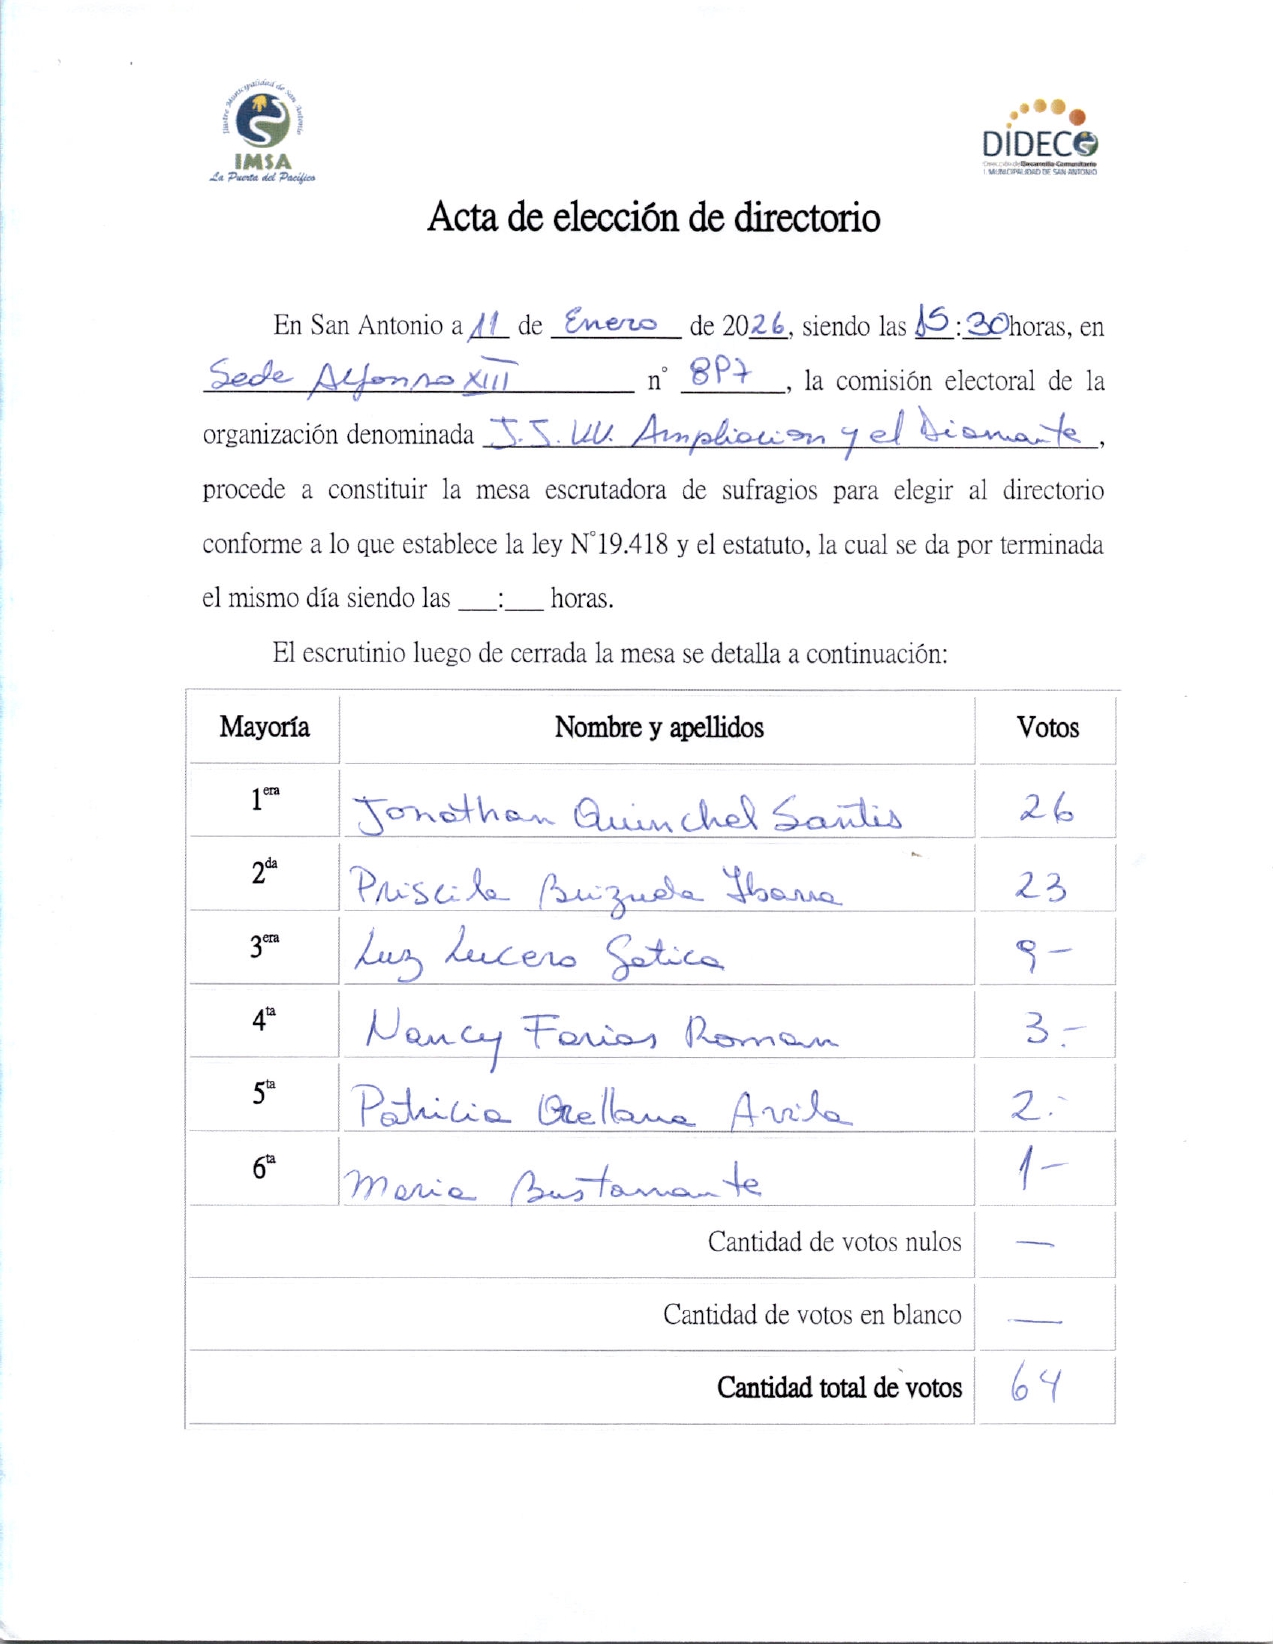 Ilustre Municipalidad de San Antonio
IMSA
La Puerta del Pacífico
DIDECO
Dirección de Desarrollo Comunitario
I. MUNICIPALIDAD DE SAN ANTONIO
Acta de elección de directorio
En San Antonio a 11 de Enero de 2026, siendo las 15:30 horas, en
Sede Alfonso XIII n° 897, la comisión electoral de la
organización denominada J.J.VV. Ampliacion y el Diamante,
procede a constituir la mesa escrutadora de sufragios para elegir al directorio
conforme a lo que establece la ley N°19.418 y el estatuto, la cual se da por terminada
el mismo día siendo las ___:___ horas.
El escrutinio luego de cerrada la mesa se detalla a continuación:
Mayoría Nombre y apellidos Votos
1era Jonathan Quinchel Santis 26
2da Priscila Brizuela Ibarra 23
3era Luz Lucero Gatica 9-
4ta Nancy Farias Roman 3.-
5ta Patricia Orellana Avila 2.-
6ta Maria Bustamante 1-
Cantidad de votos nulos —
Cantidad de votos en blanco —
Cantidad total de votos 64